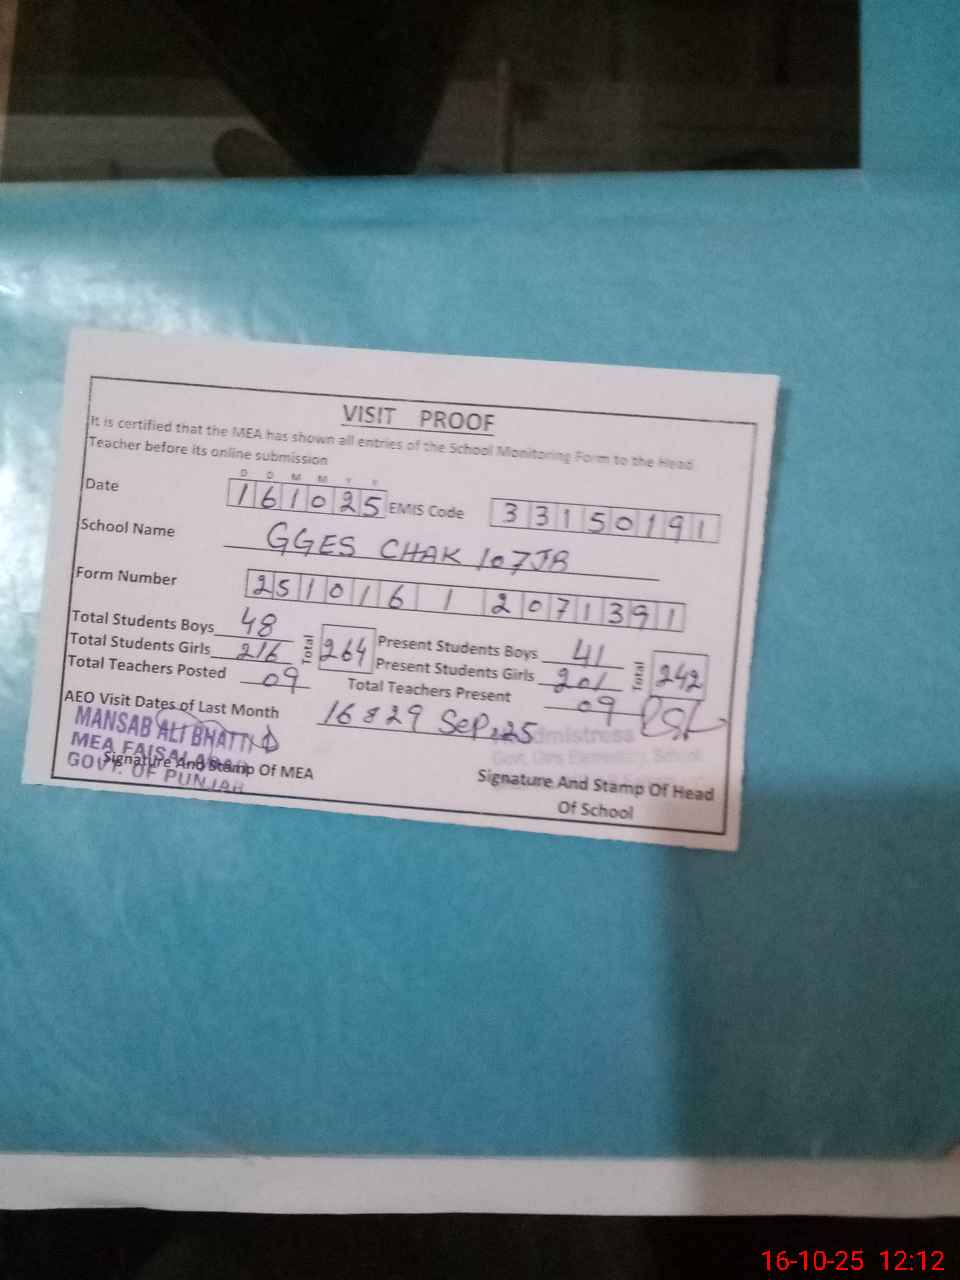 VISIT PROOF
It is certified that the MEA has shown all entries of the School Monitoring Form to the Head
Teacher before its online submission
D D M M Y Y
Date 161025 EMIS Code 33150191
School Name GGES CHAK 107JB
Form Number 251016 1 2071391
Total Students Boys 48 Total 264 Present Students Boys 41 Total 242
Total Students Girls 216 Present Students Girls 201
Total Teachers Posted 09 Total Teachers Present 09
AEO Visit Dates of Last Month 16 & 29 Sep,25
MANSAB ALI BHATTI
MEA FAISALABAD
GOVT. OF PUNJAB
Signature And Stamp Of MEA
Headmistress
Govt. Girls Elementary School
Signature And Stamp Of Head
Of School
16-10-25 12:12